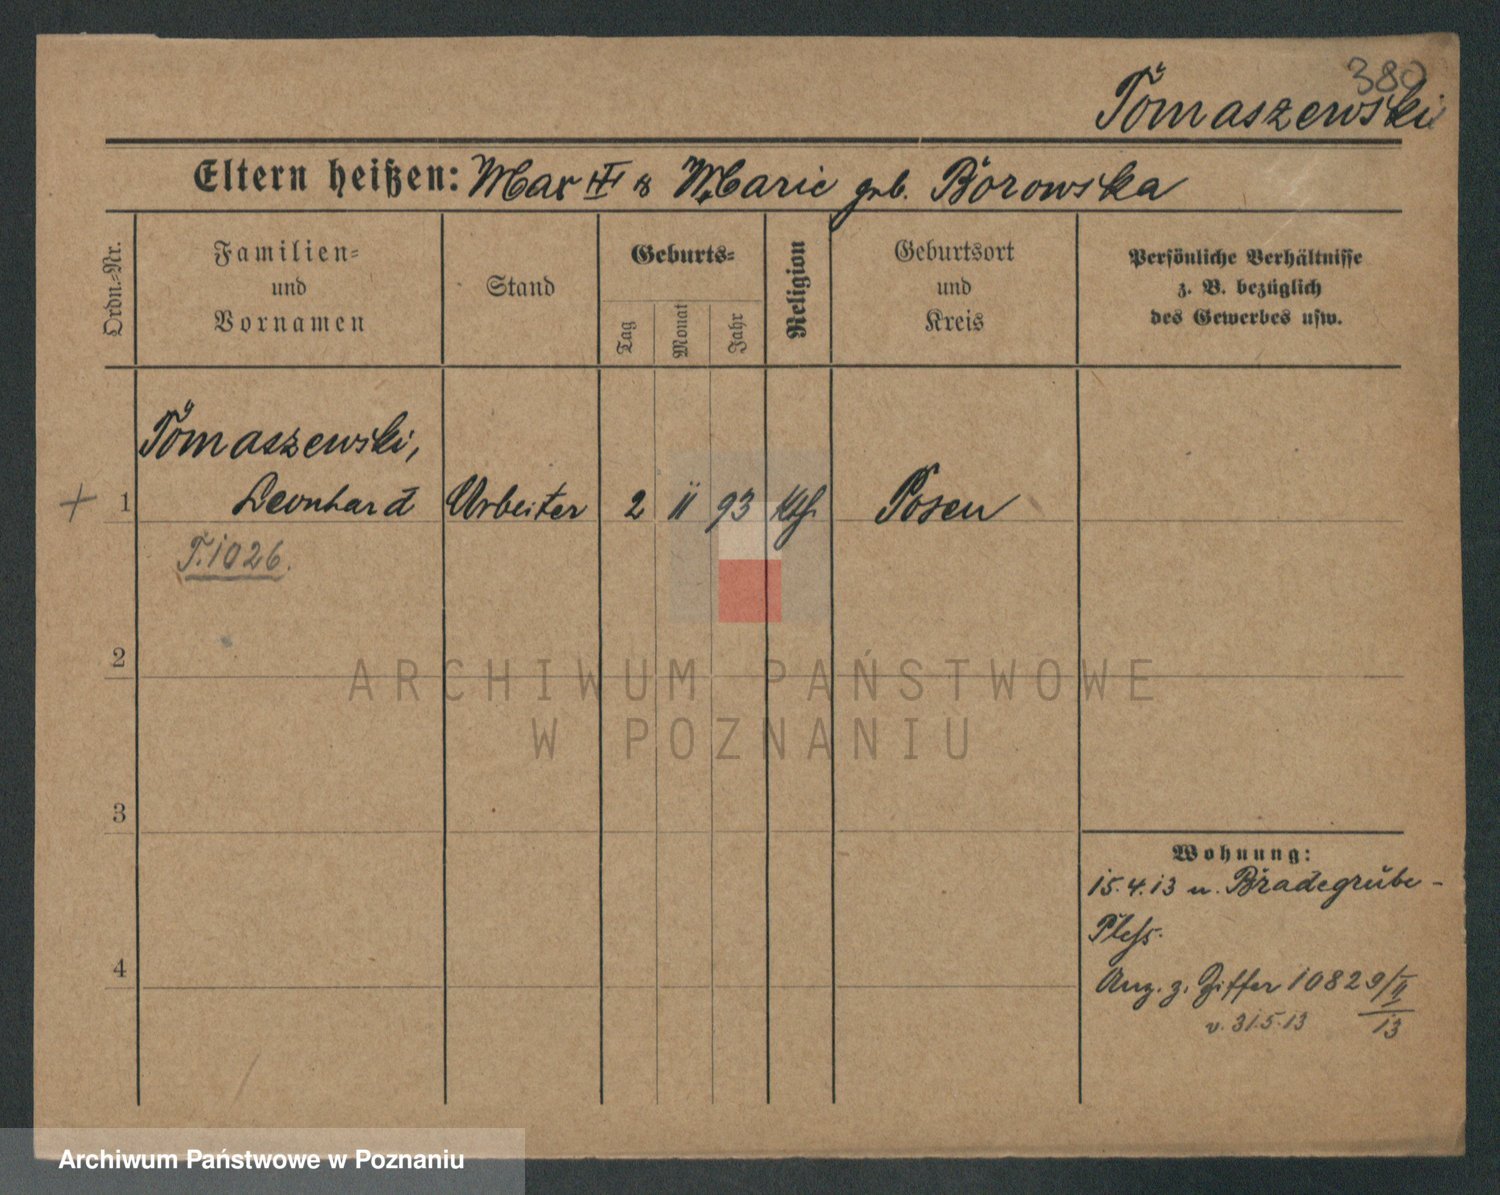 380
Tomaszewski
Eltern heißen: Max III & Marie geb. Borowska
Ordn.-Nr.
Familien-
und
Vornamen
Stand
Geburts-
Tag
Monat
Jahr
Religion
Geburtsort
und
Kreis
Persönliche Verhältnisse
z. B. bezüglich
des Gewerbes usw.
Tomaszewski,
+ 1 Leonhard Arbeiter 2 II 93 kth. Posen
T. 1026.
2
ARCHIWUM PAŃSTWOWE
W POZNANIU
3
Wohnung:
15.4.13 n. Bradegrube-
Pleß.
4
Anz. z. Ziffer 10829/II
v. 31.5.13 13
Archiwum Państwowe w Poznaniu